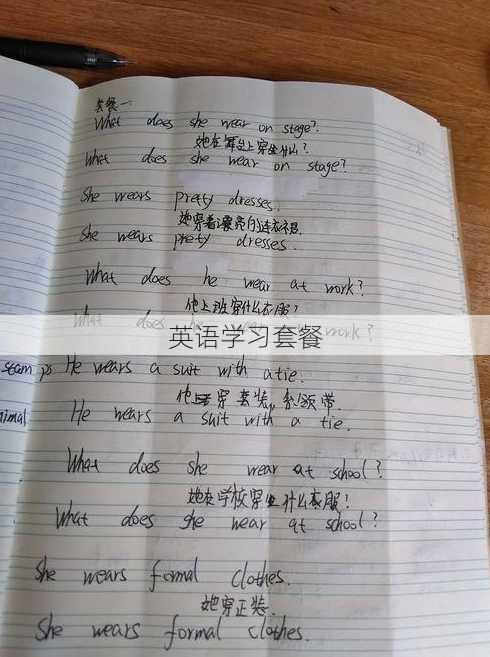 套餐一:
What does she wear on stage?
她在舞台上穿什么?
What does she wear on stage?
She wears pretty dresses.
她穿着漂亮的连衣裙.
She wears pretty dresses.
What does he wear at work?
他上班穿什么衣服?
What does he work?
英语学习套餐
He wears a suit with a tie.
他上班穿套装,系领带.
He wears a suit with a tie.
What does she wear at school?
她在学校穿什么衣服?
What does she wear at school?
She wears formal clothes.
她穿正装.
She wears formal clothes.